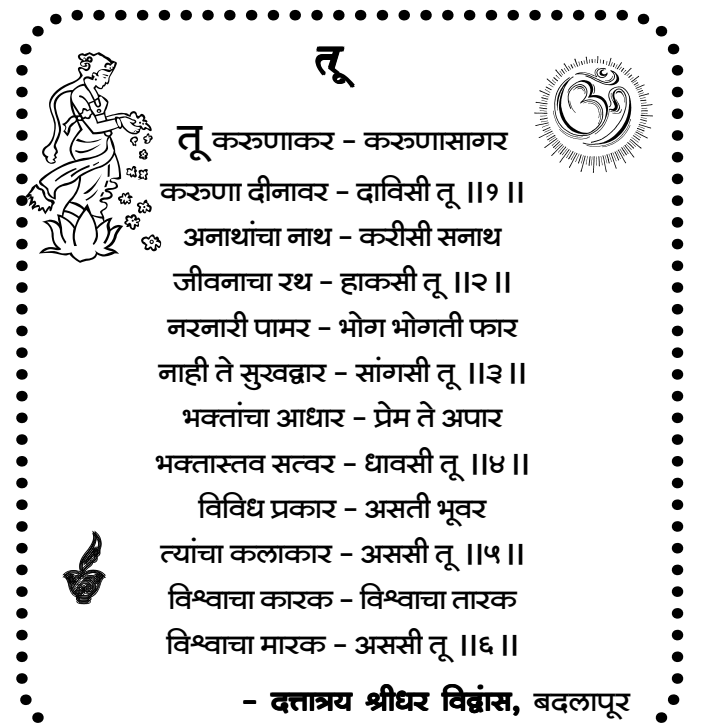 तू
तू करुणाकर – करुणासागर
करुणा दीनावर – दाविसी तू ॥१॥
अनाथांचा नाथ – करीसी सनाथ
जीवनाचा रथ – हाकसी तू ॥२॥
नरनारी पामर – भोग भोगती फार
नाही ते सुखद्वार – सांगसी तू ॥३॥
भक्तांचा आधार – प्रेम ते अपार
भक्तास्तव सत्वर – धावसी तू ॥४॥
विविध प्रकार – असती भूवर
त्यांचा कलाकार – अससी तू ॥५॥
विश्वाचा कारक – विश्वाचा तारक
विश्वाचा मारक – अससी तू ॥६॥
– दत्तात्रय श्रीधर विद्वांस, बदलापूर
ॐ